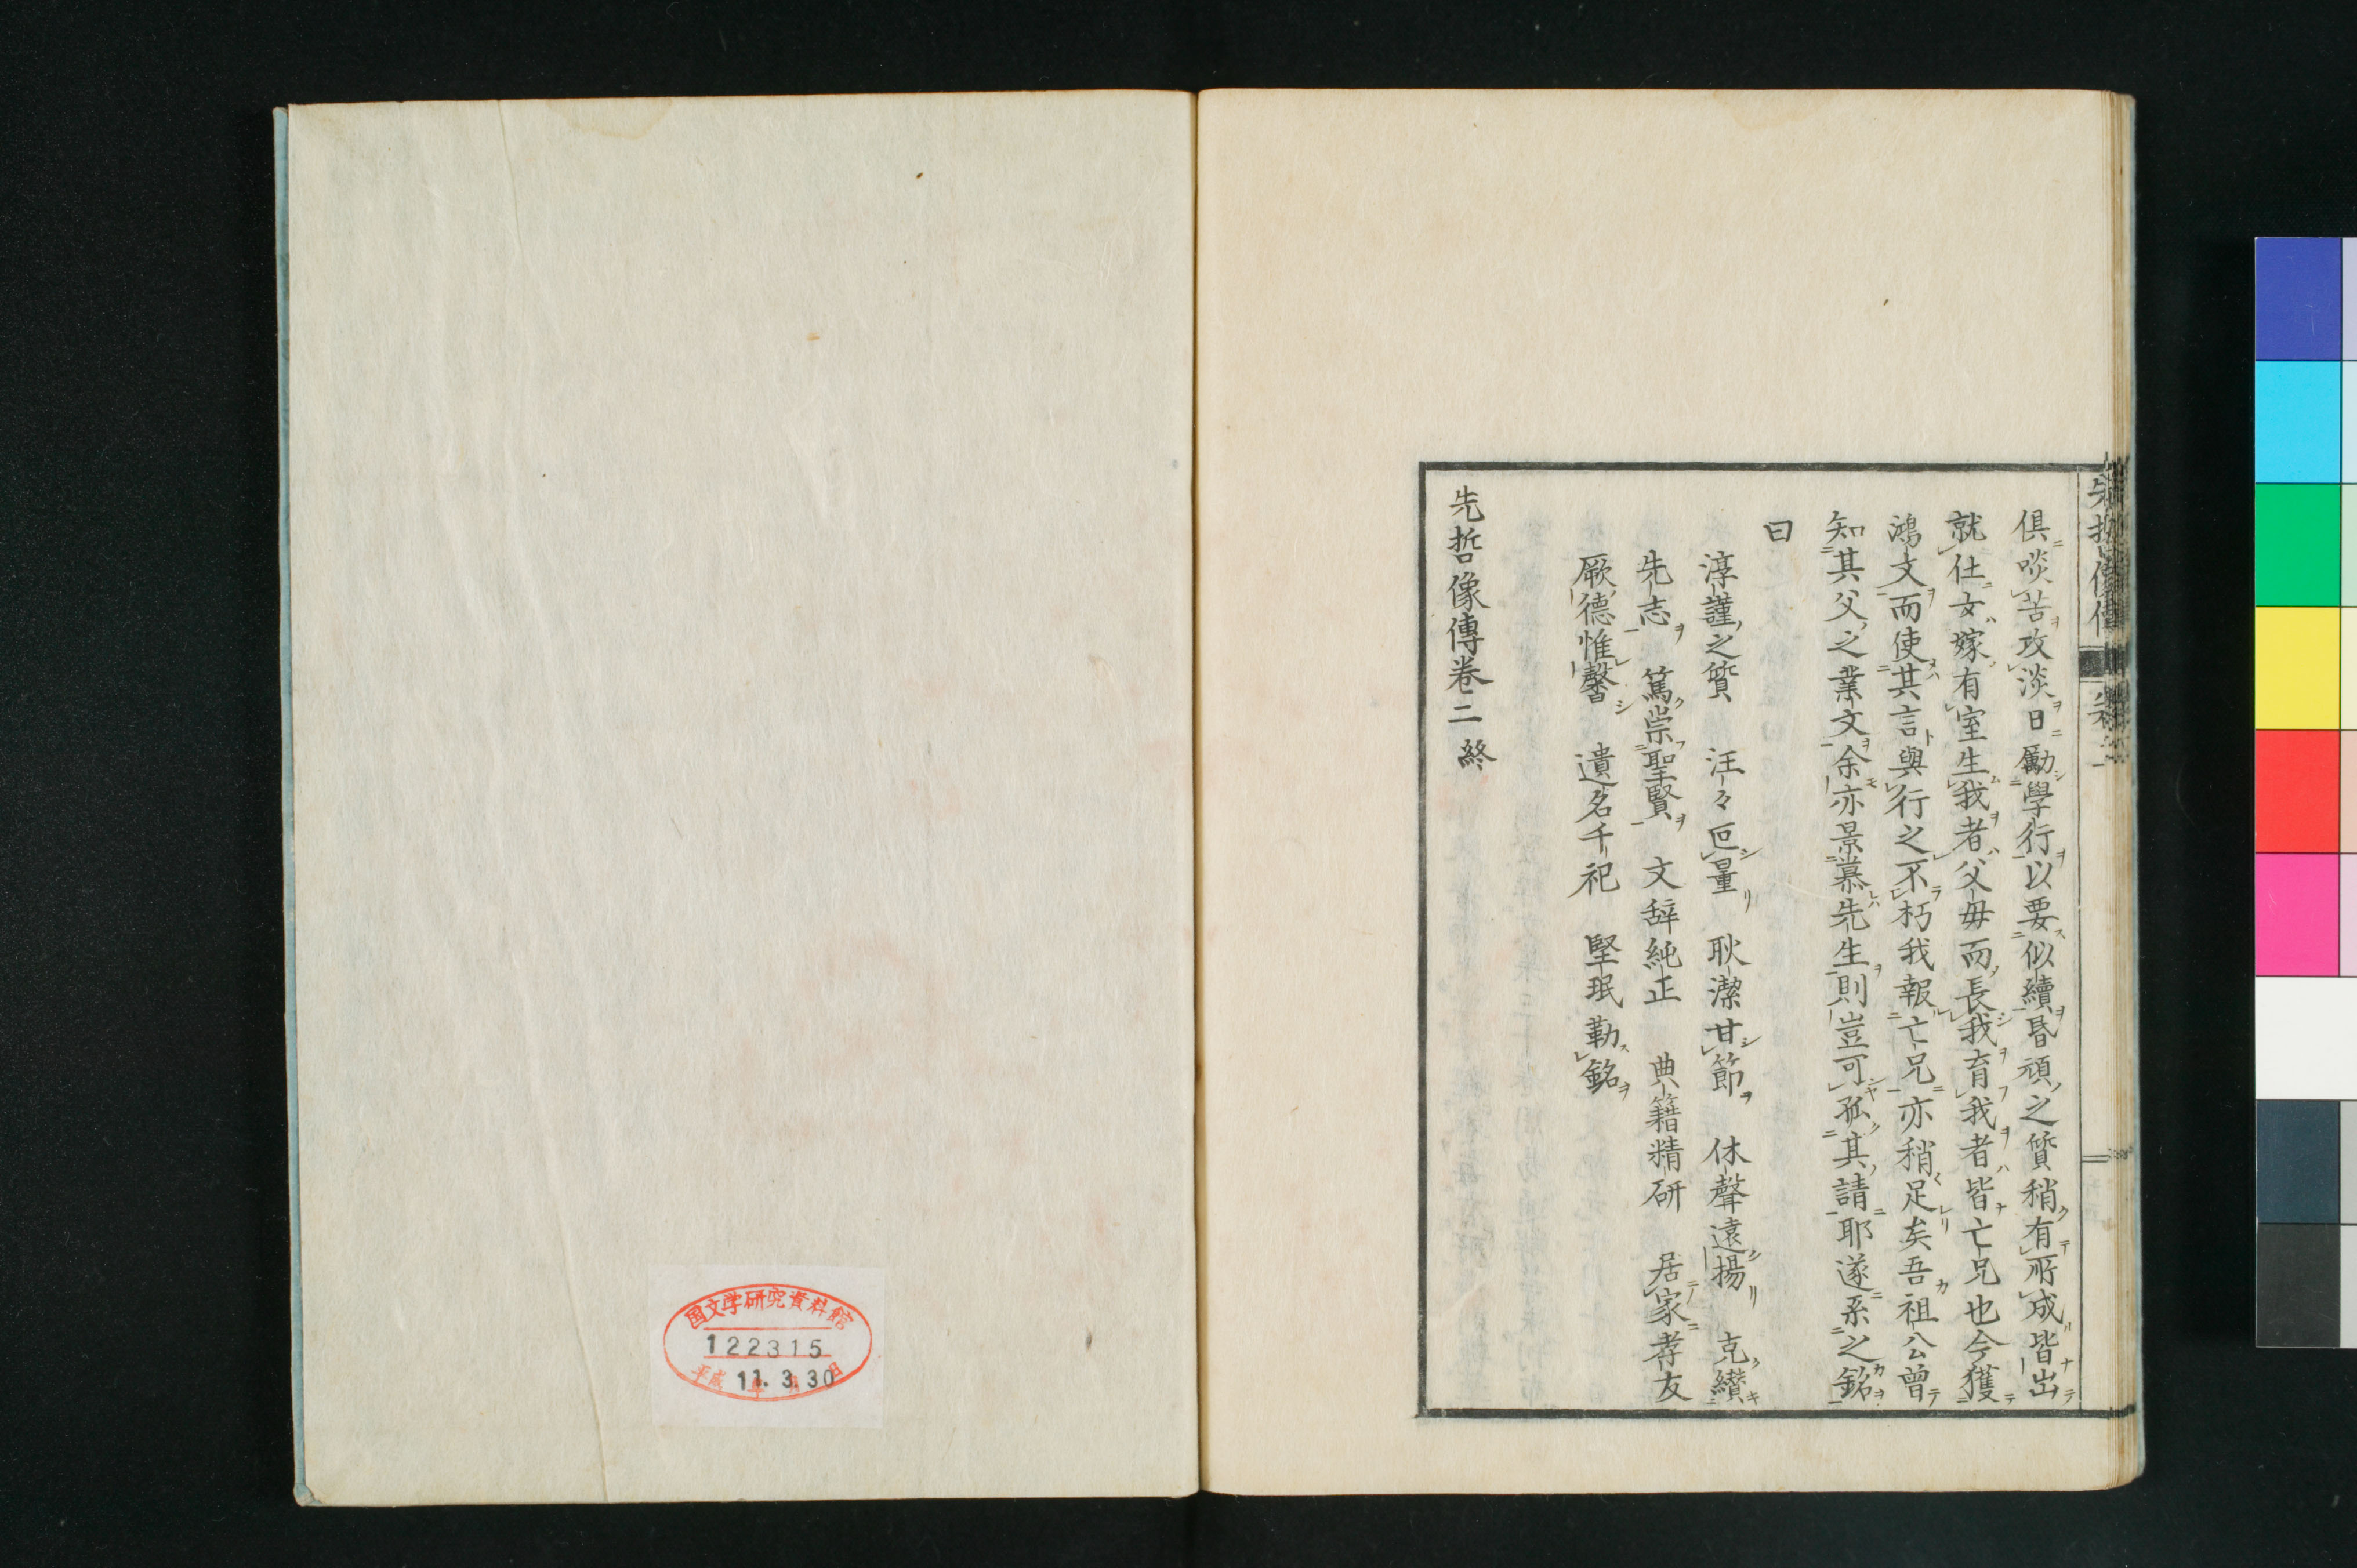 先哲像傳 卷二
俱啖苦攻淡日勵學行以要似續昬頑之質稍有所成皆出
就仕女嫁有室生我者父母而長我育我者皆亡兄也今獲
鴻文而使其言與行之不朽我報亡兄亦稍足矣吾祖公曾
知其父之業文余亦景慕先生則豈可孤其請耶遂系之銘
曰
淳謹之質 汪々叵量 耿潔甘節 休聲遠揚 克纘
先志 篤崇聖賢 文辞純正 典籍精研 居家孝友
厥德惟馨 遺名千祀 堅珉勒銘
先哲像傳卷二 終
国文学研究資料館
122315
平成 11. 3. 30